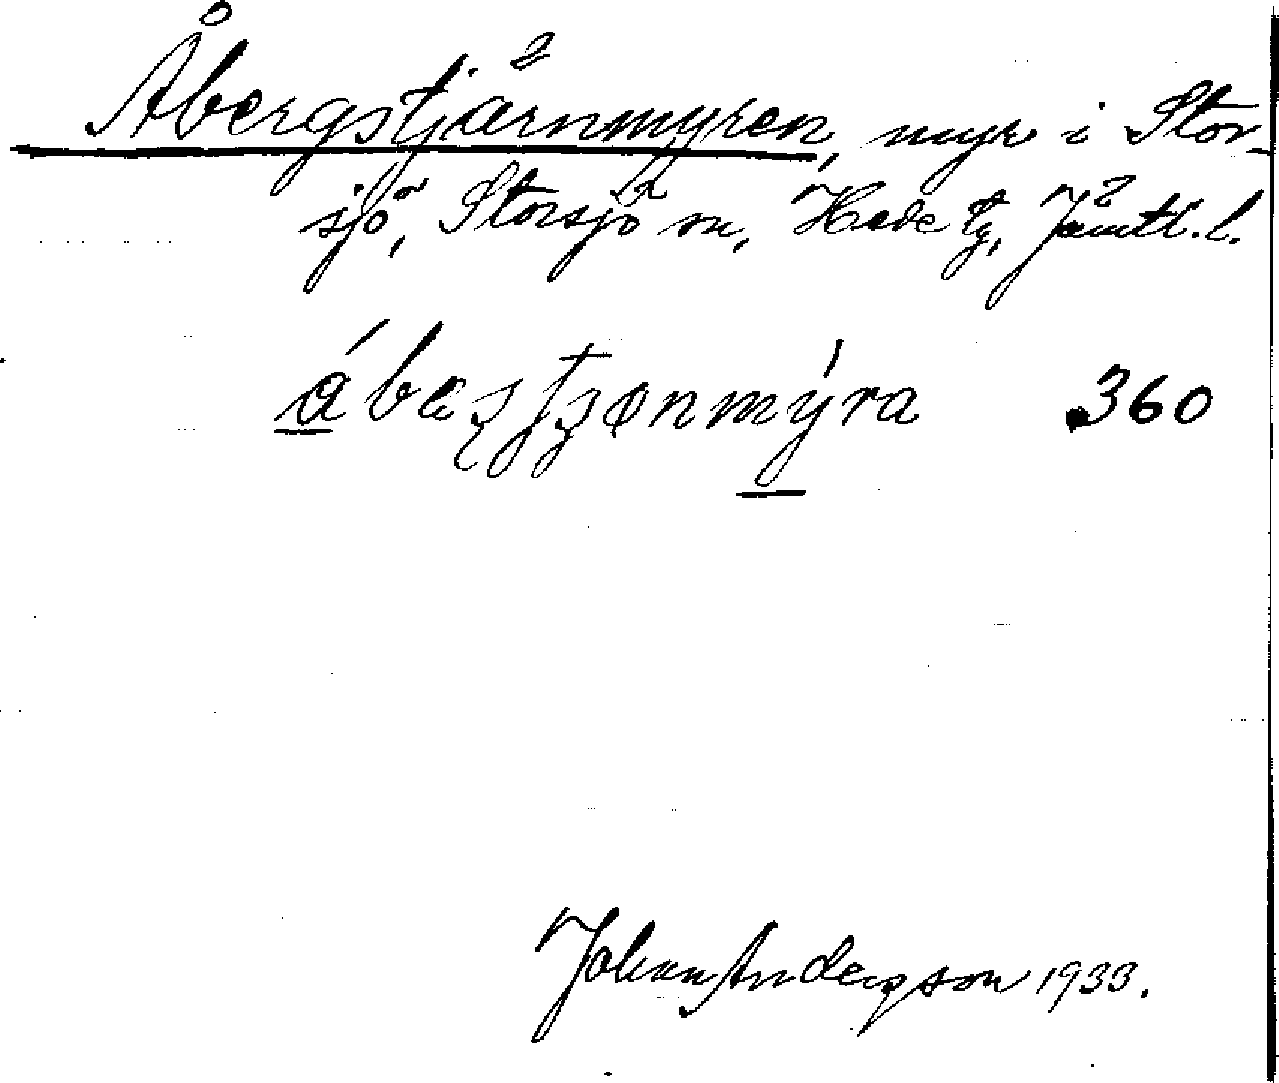 Åbergstjärnmyren, myr i Stor-
sjö, Storsjö sn, Hede tg, Jämtl. l.
360
Johan Anderson 1933.